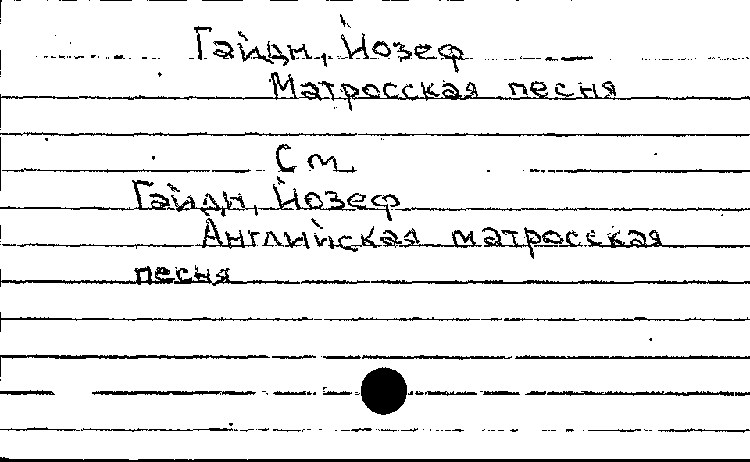 Гайдн, Йозеф
Матросская песня
См.
Гайдн, Йозеф
Английская матросская
песня